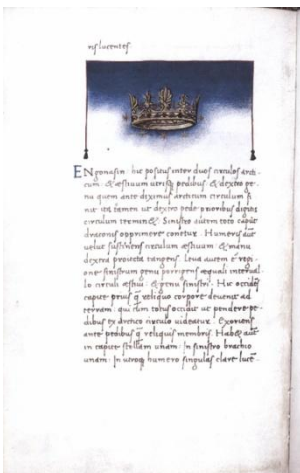 ris lucentes
ENgonasin· hic positus inter duos circulos arcti
cum· & æstiuum utrisq; pedibus· & dextro ge
nu quem ante diximus arcticum circulum fi
nit ita tamen ut dextro pede prioribus digitis
circulum terminet· Sinistro autem toto caput
draconis opprimere conetur· Humeris aut
uelut sustinens circulum æstiuum· & manu
dextra proiecta tangens· Leua autem e regi
one sinistrum genu porrigens æquali interual
lo circuli æstiui· & genu sinistri· Hic occidens
capite prius q̃ reliquo corpore deuenit ad
terram· qui cum totus occidit ut pendere pe
dibus ex arctico circulo uideatur· Exoriens
ante pedibus q̃ reliquis membris· Habet aut
in capite stellam unam· In sinistro brachio
unam· In utroq; humero singulas clare lucen-